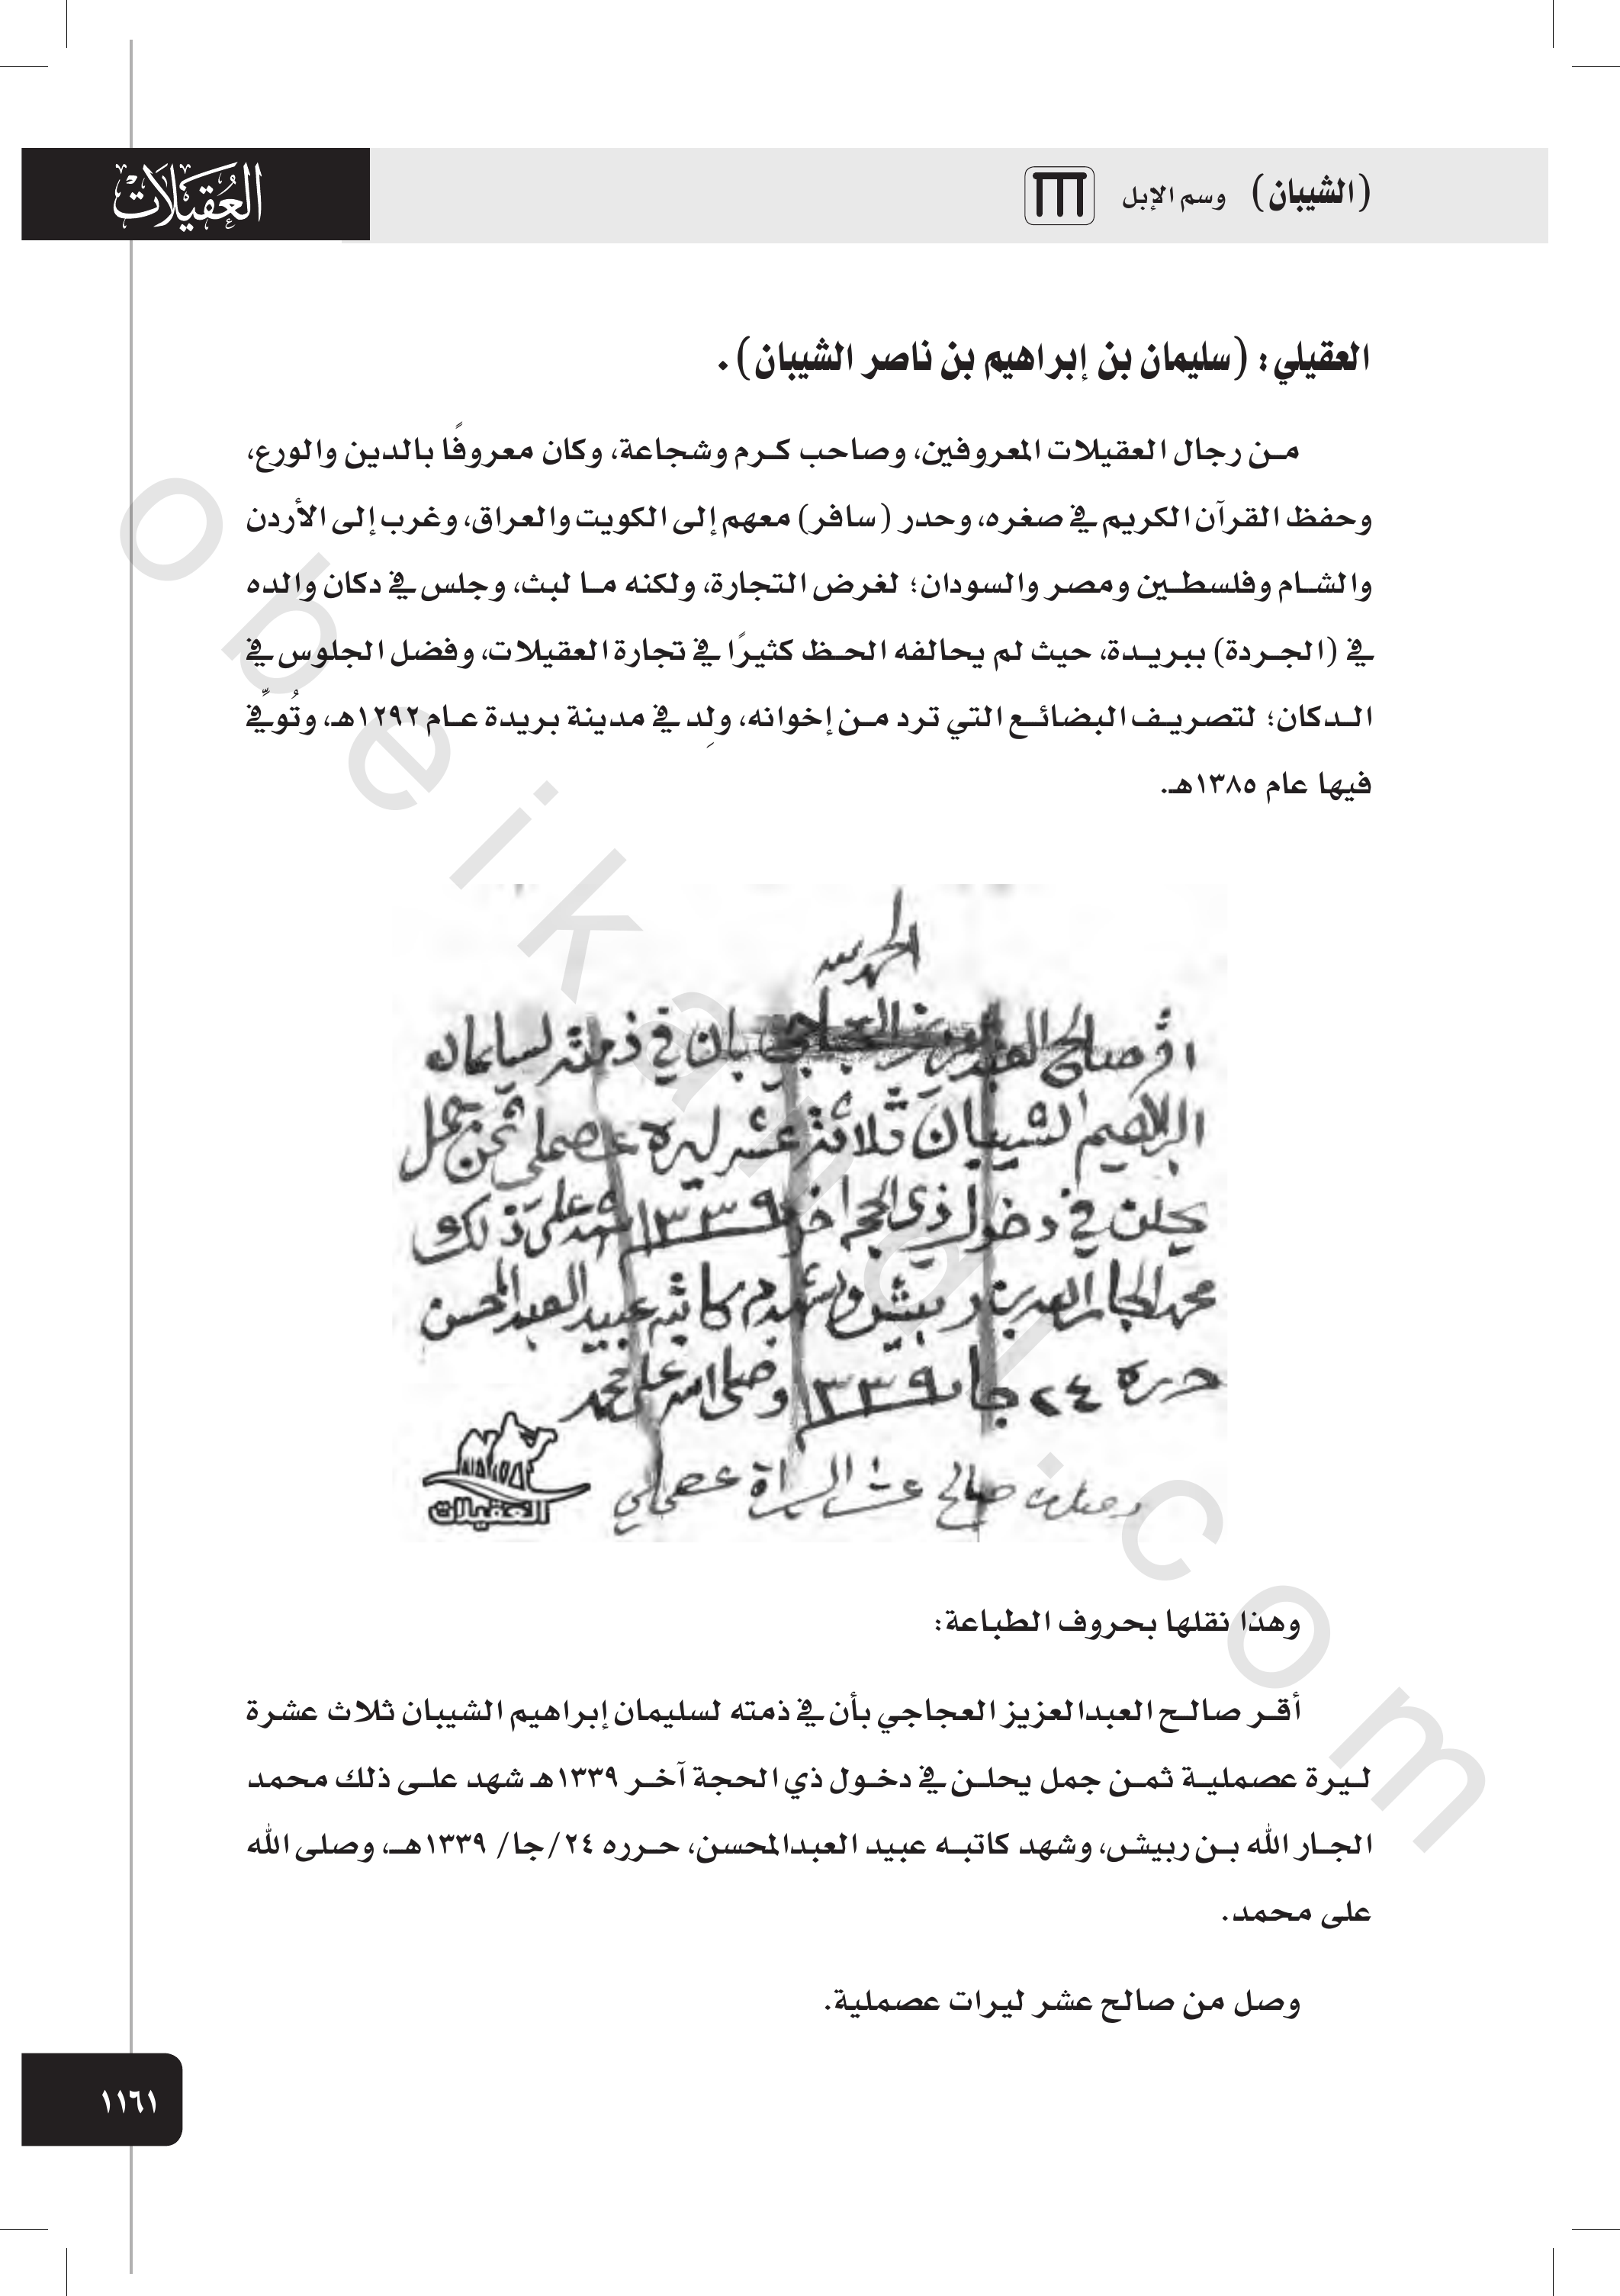 (الشيبان) وسم الإبل
العقيلات
العقيلي: (سليمان بن إبراهيم بن ناصر الشيبان).
من رجال العقيلات المعروفين، وصاحب كرم وشجاعة، وكان معروفًا بالدين والورع،
وحفظ القرآن الكريم في صغره، وحدر (سافر) معهم إلى الكويت والعراق، وغرب إلى الأردن
والشام وفلسطين ومصر والسودان؛ لغرض التجارة، ولكنه ما لبث، وجلس في دكان والده
في (الجردة) ببريدة، حيث لم يحالفه الحظ كثيرًا في تجارة العقيلات، وفضل الجلوس في
الدكان؛ لتصريف البضائع التي ترد من إخوانه، ولِد في مدينة بريدة عام ١٢٩٢هـ، وتُوفِّي
فيها عام ١٣٨٥هـ.
الحمد لله
اقر صالح العبد العزيز العجاجي بان في ذمته لسليمان
البراهيم الشيبان ثلاثة عشر ليره عصملي ثمن جمل
يحلن في دخول ذي الحج اخر ١٣٣٩ شهد على ذلك
محمد الجار الله بن ربيش وشهد به كاتبه عبيد العبد المحسن
حرره ٢٤ جا ١٣٣٩ وصلى الله على محمد
صالح عشر عصملي
العقيلات
وهذا نقلها بحروف الطباعة:
أقر صالح العبدالعزيز العجاجي بأن في ذمته لسليمان إبراهيم الشيبان ثلاث عشرة
ليرة عصملية ثمن جمل يحلن في دخول ذي الحجة آخر ١٣٣٩هـ شهد على ذلك محمد
الجار الله بن ربيش، وشهد كاتبه عبيد العبدالمحسن، حرره ٢٤/جا/ ١٣٣٩هـ، وصلى الله
على محمد.
وصل من صالح عشر ليرات عصملية.
١١٦١
obeikandl.com